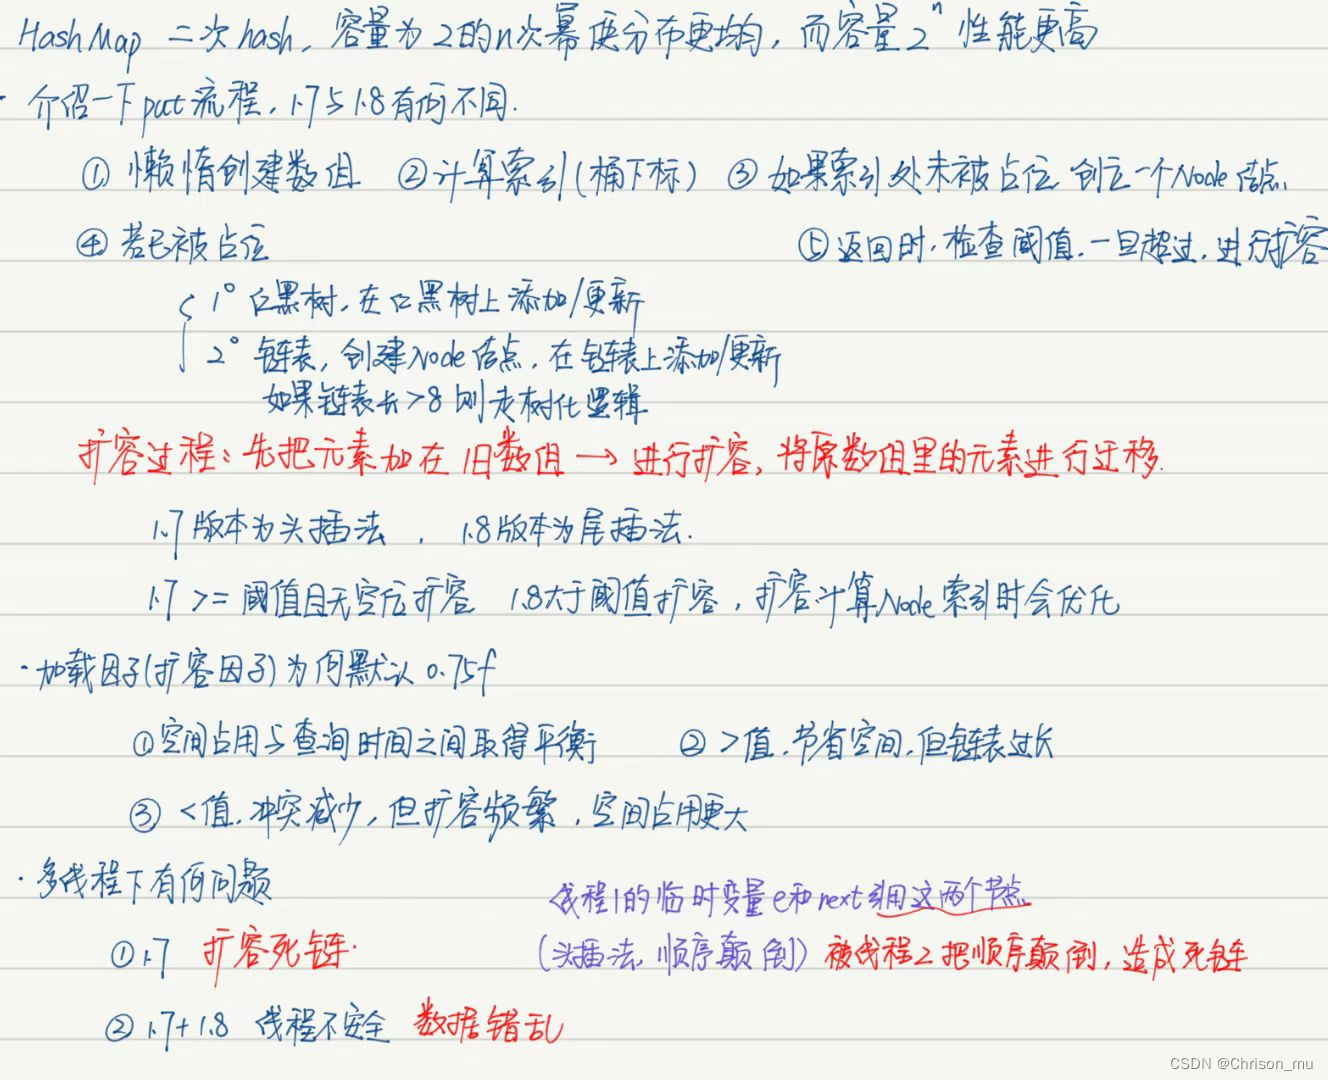 HashMap 二次hash, 容量为2的n次幂使分布更均, 而容量2^n 性能更高
· 介绍一下put流程, 1.7与1.8有何不同.
① 懒惰创建数组 ② 计算索引(桶下标) ③ 如果索引处未被占位 创立一个Node结点.
④ 若已被占位 ⑤ 返回时, 检查阈值, 一旦超过, 进行扩容
1° 红黑树, 在红黑树上添加/更新
2° 链表, 创建Node结点, 在链表上添加/更新
如果链表长>8 则走树化逻辑
扩容过程: 先把元素加在 旧数组 → 进行扩容, 将原数组里的元素进行迁移.
1.7版本为头插法 , 1.8版本为尾插法.
1.7 >= 阈值且无空位扩容 1.8大于阈值扩容, 扩容计算Node索引时会优化
· 加载因子(扩容因子)为何默认 0.75f
①空间占用与查询时间之间取得平衡 ② >值, 节省空间, 但链表过长
③ <值, 冲突减少, 但扩容频繁, 空间占用更大
· 多线程下有何问题
线程1的临时变量e和next引用这两个节点
①1.7 扩容死链. (头插法, 顺序颠倒) 被线程2把顺序颠倒, 造成死链
② 1.7+1.8 线程不安全 数据错乱
CSDN @Chrison_mu